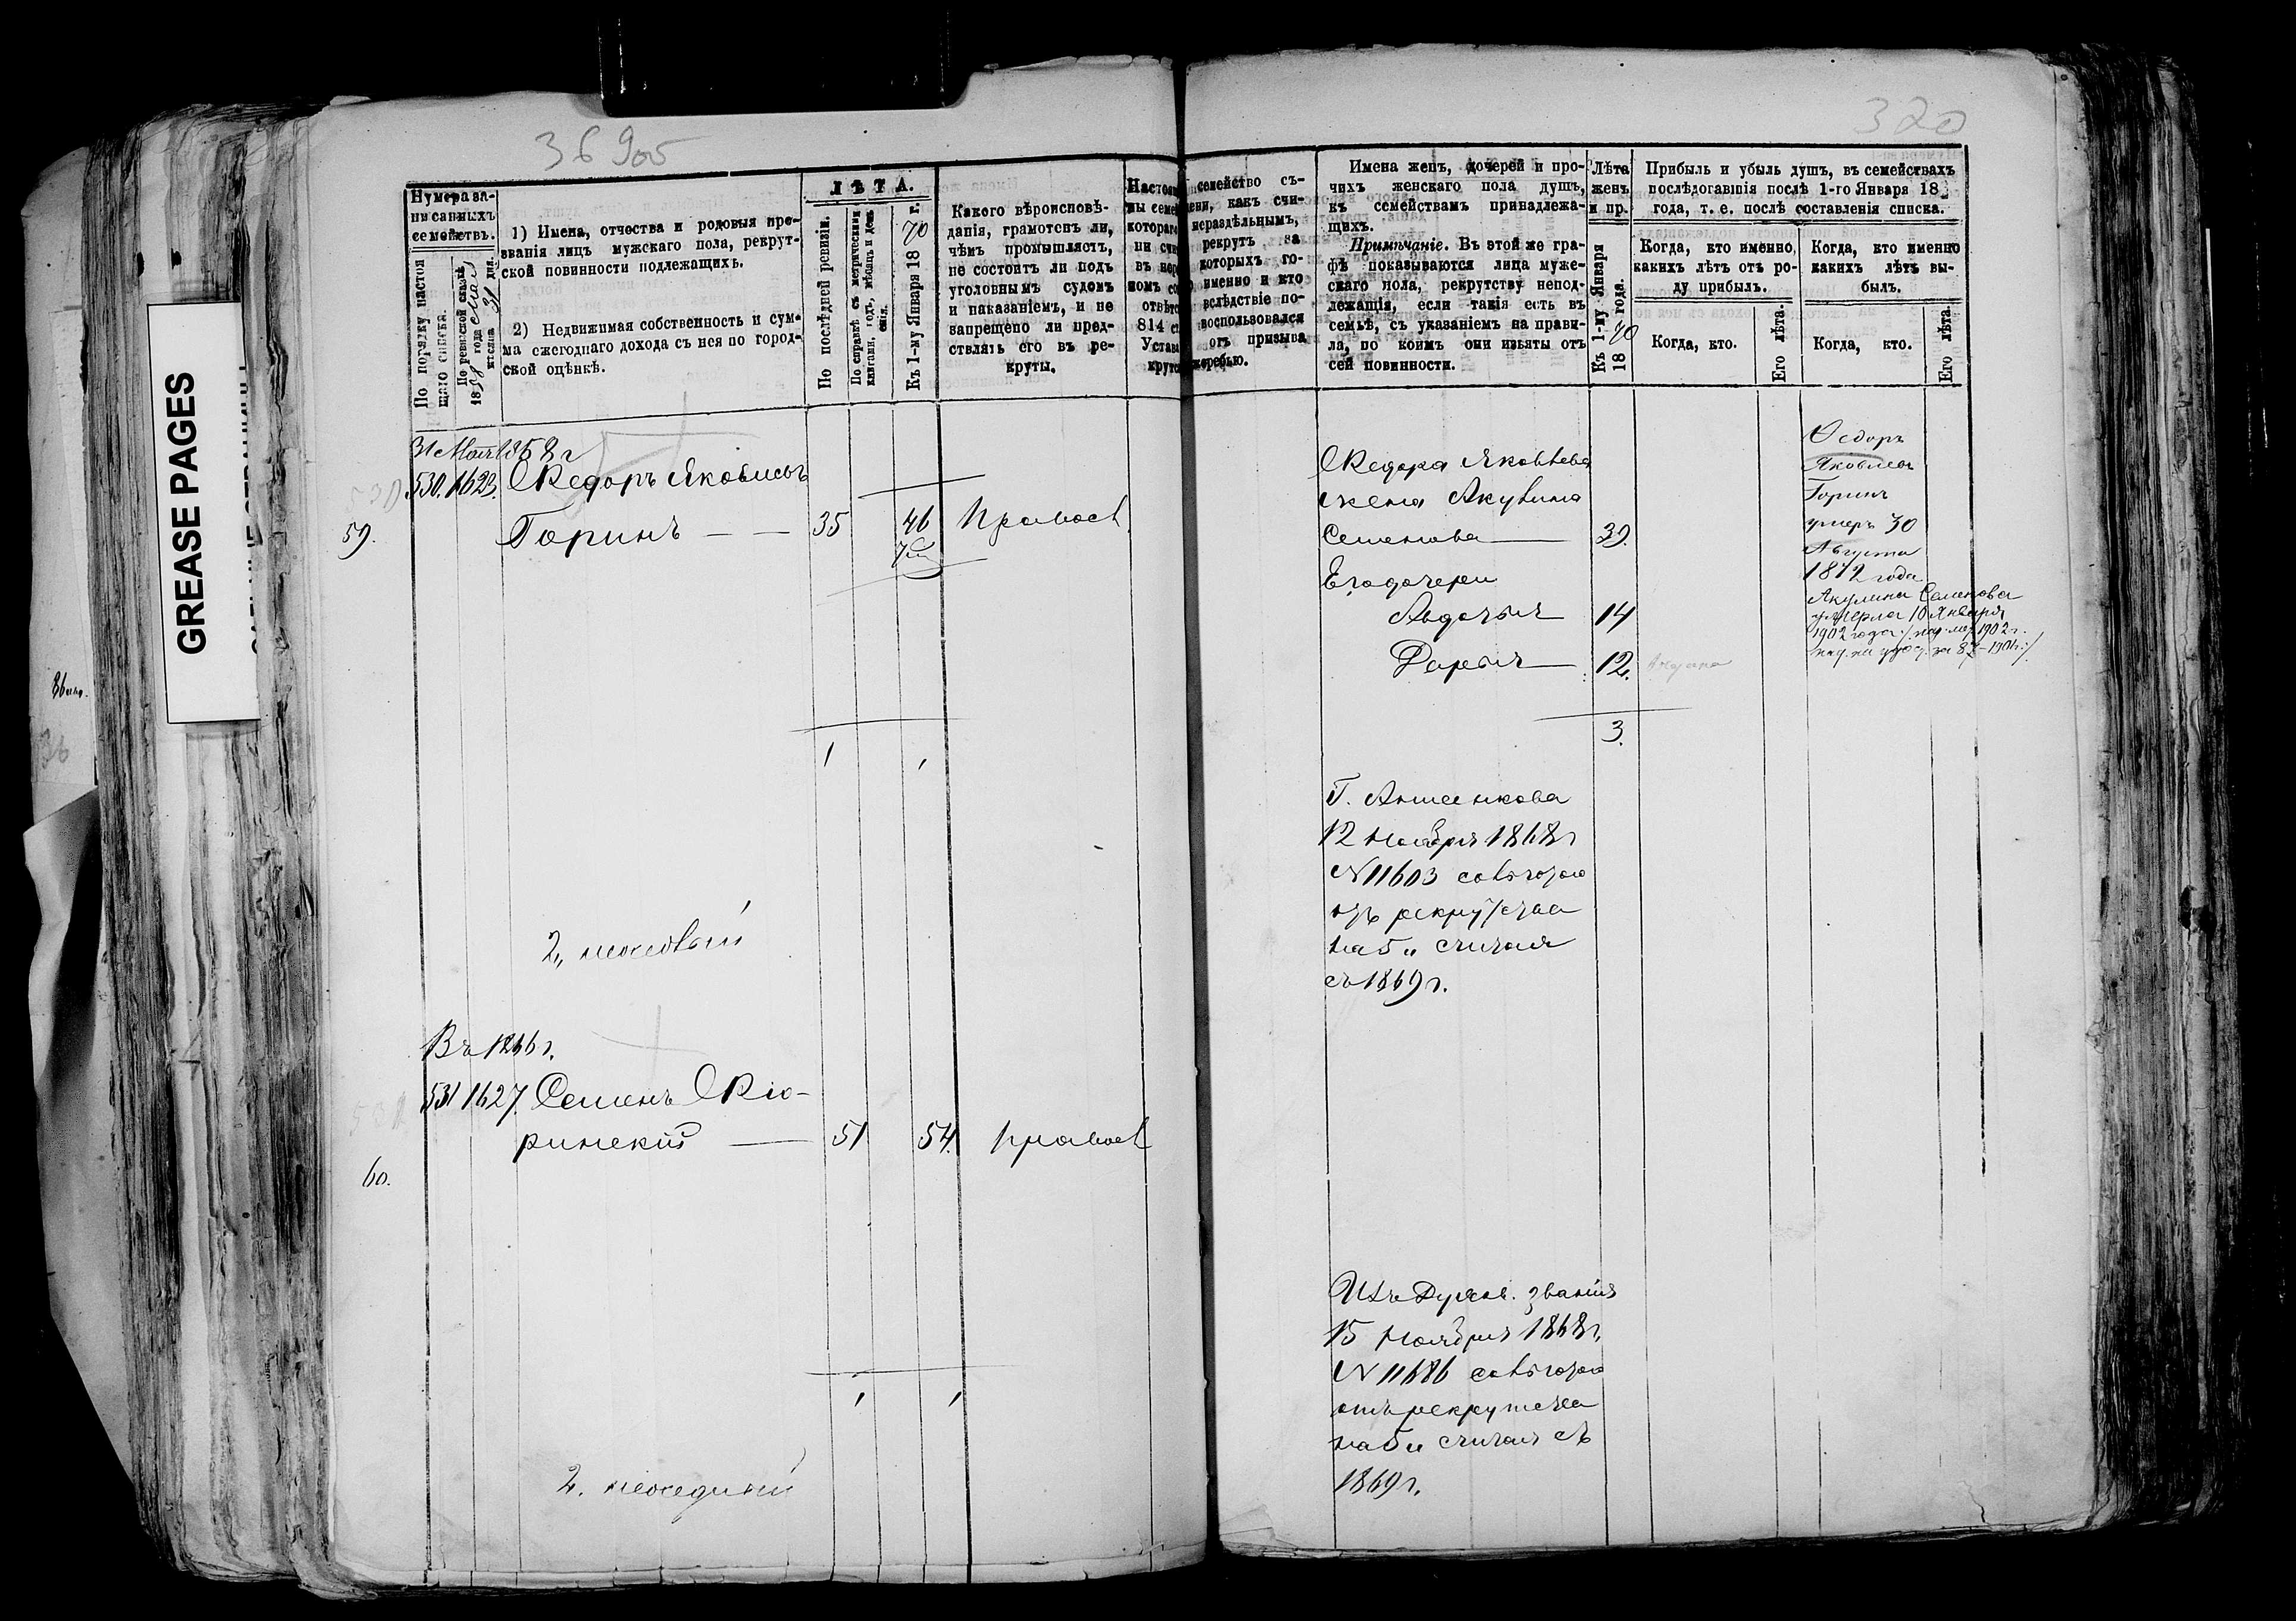 36 905
320
GREASE PAGES
Нумера за-
писанныхъ
семействъ.
По порядку настоя
щаго списка.
По ревизской сказкѣ
1858 года мая
мѣсяца 31 дня.
1) Имена, отчества и родовыя про-
званія лицъ мужскаго пола, рекрут-
ской повинности подлежащихъ.
2) Недвижимая собственность и сум-
ма ежегоднаго дохода съ нея по город-
ской оцѣнкѣ.
ЛѢТА.
По послѣдней ревизіи.
По справкѣ съ метрическими
книгами, годъ, мѣсяцъ и день
Къ 1-му Января 1870 г.
Какого вѣроисповѣ-
данія, грамотенъ ли,
чѣмъ промышляетъ,
не состоитъ ли подъ
уголовнымъ судомъ
и наказаніемъ, и не
запрещено ли пред-
ставлять его въ ре-
круты.
Настоящ
ны семе
котораго
ни счи
въ нер
номъ со
отвѣтс
814 с
Устав
крутс
семейство съ-
ени, какъ счи-
нераздѣльнымъ,
рекрутъ за
которыхъ го-
именно и кто
вслѣдствіе по-
воспользовался
отъ призыва
жеребью.
Имена женъ, дочерей и про-
чихъ женскаго пола душъ,
къ семействамъ принадлежа-
щихъ.
Примѣчаніе. Въ этой же гра-
фѣ показываются лица муже-
скаго пола, рекрутству непод-
лежащія, если такія есть въ
семьѣ, съ указаніемъ на прави-
ла, по коимъ они изъяты отъ
сей повинности.
Лѣта
женъ
и пр.
Къ 1-му Января
1870 года.
Прибыль и убыль душъ, въ семействахъ
послѣдовавшія послѣ 1-го Января 18
года, т. е. послѣ составленія списка.
Когда, кто именно,
какихъ лѣтъ отъ ро-
ду прибылъ.
Когда, кто именно
какихъ лѣтъ вы-
былъ.
Когда, кто.
Его лѣта.
Когда, кто.
Его лѣта.
31 Мая 1858 г
530. 1623. Федоръ Яковлевъ
59. Горинъ — — 35 46 Правосл
Федора Яковлева
жена Акулина
Семенова — 39.
Его дочери
Авдотья 14
Дарья — 12.
3.
Федоръ
Яковлевъ
Горинъ
умеръ 30
Августа
1872 года
Акулина Семенова
умерла 10 Января
1902 года
1 1
Г. Анненкова
12 Ноября 1868 г
N 11603 свободою
отъ рекрутства
на 6 л считая
съ 1869 г.
Въ 1866 г.
531 1627. Семенъ Фло-
ринскій — 51 54. правосл
60.
Изъ Духов. званія
15 Ноября 1868 г,
N 11686 свободою
отъ рекрутства
на 6 л считая съ
1869 г.
1 1